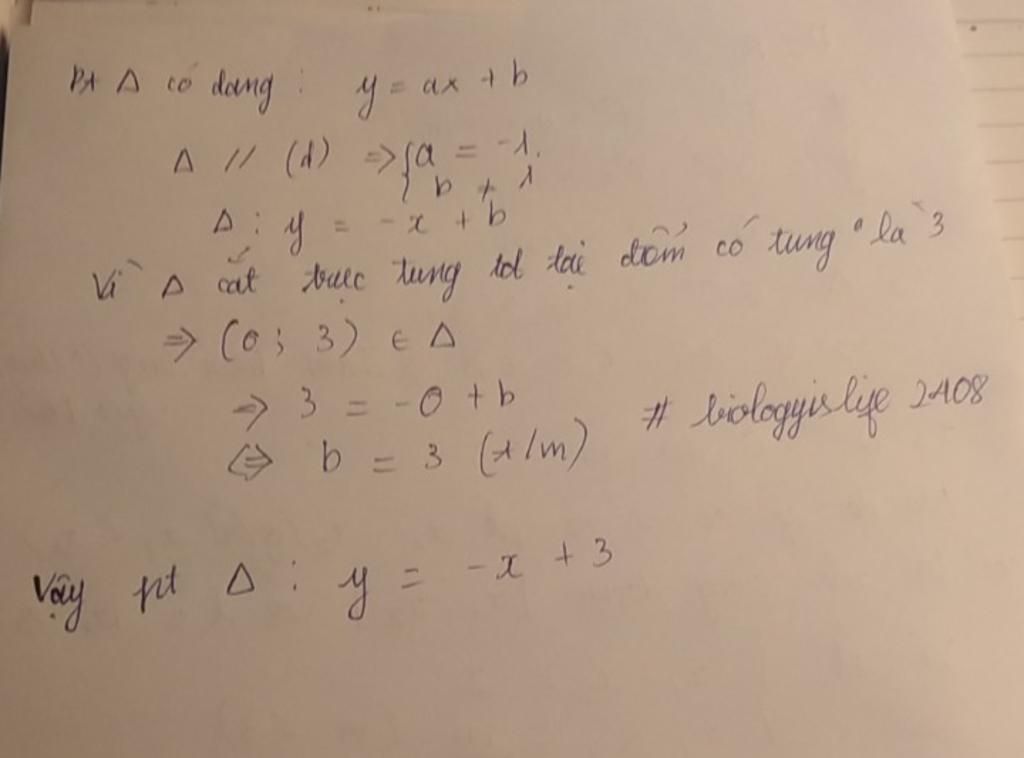 Pt Δ có dạng : y = ax + b
Δ // (d) => { a = -1.
b ≠ 1
Δ : y = -x + b
Vì Δ cắt trục tung tđ tại điểm có tung ° là 3
=> (0 ; 3) ∈ Δ
=> 3 = -0 + b
<=> b = 3 (t/m)
# biologyislife 2408
Vậy pt Δ : y = -x + 3